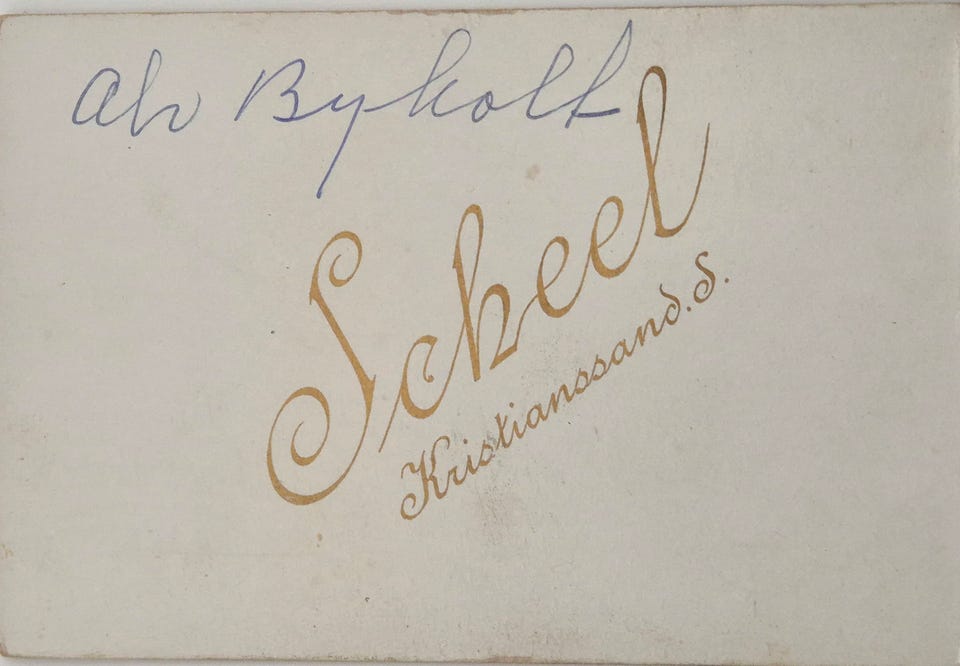 Byholt
Scheel
Kristianssand. S.